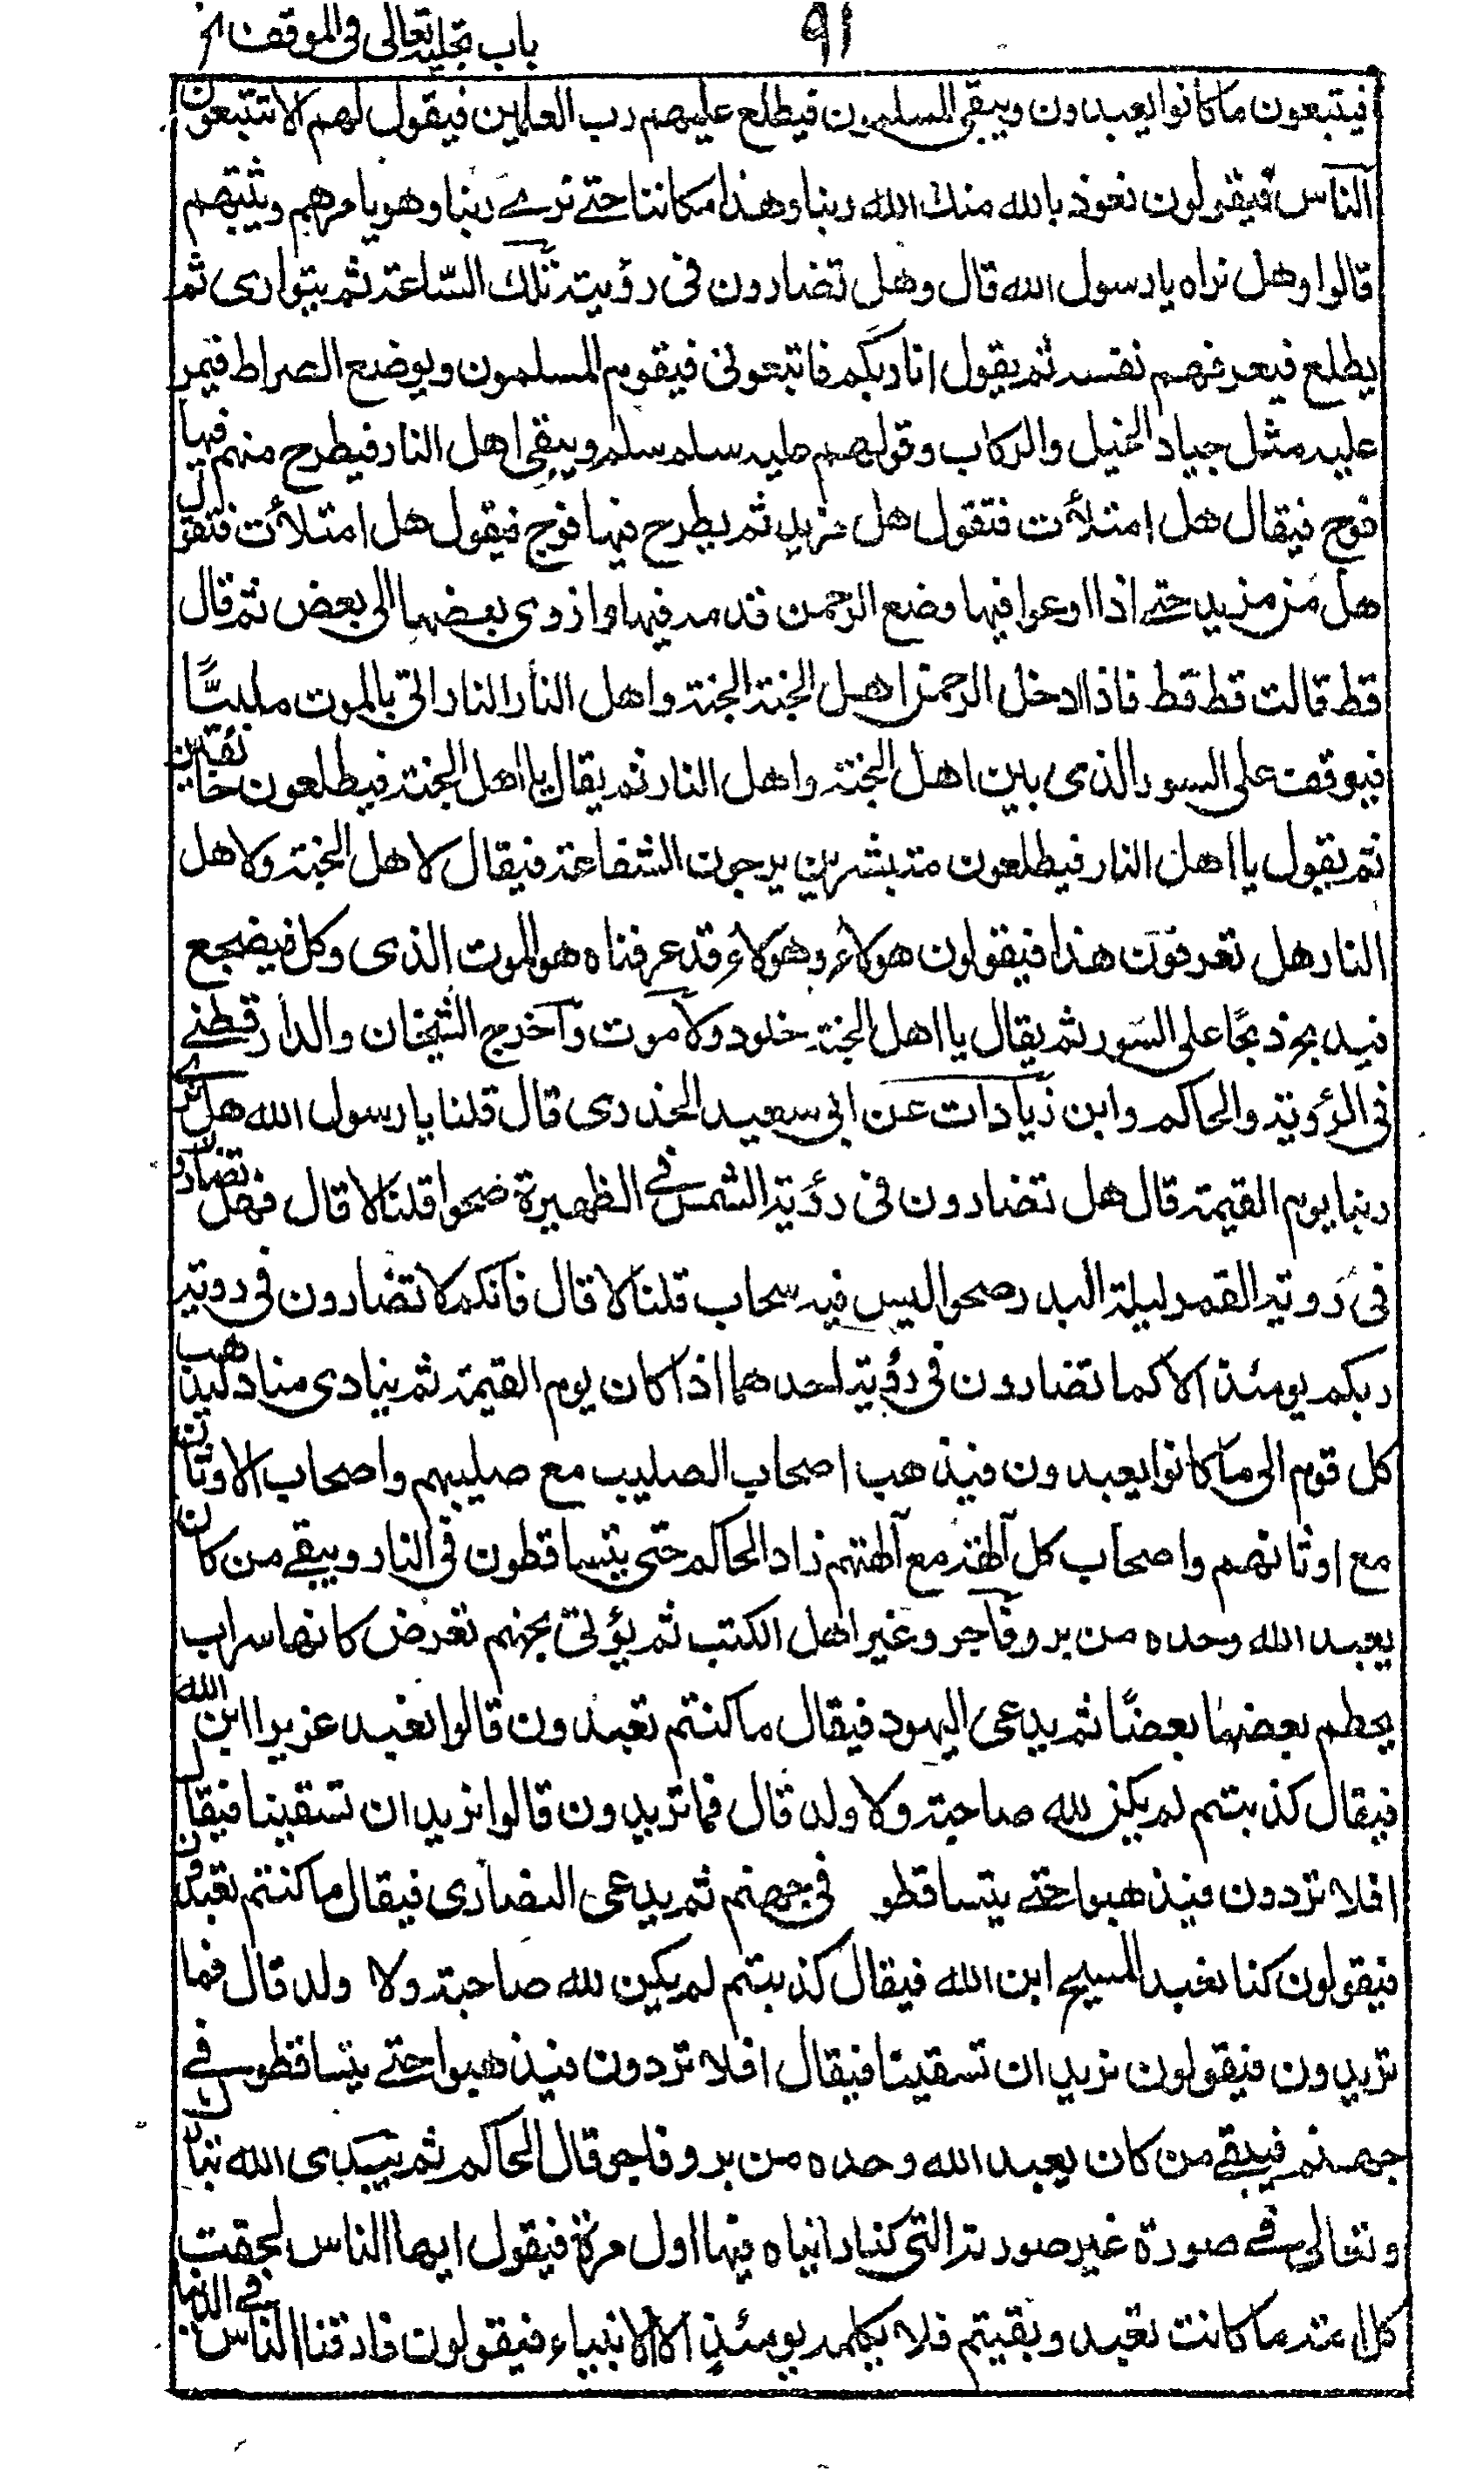 ٩١
باب تجليه تعالى فى الموقف الخ
فيتبعون ما كانوا يعبدون ويبقى المسلمون فيطلع عليهم رب العلمين فيقول لهم الا تتبعون
الناس فيقولون نعوذ بالله منك الله ربنا وهذا مكاننا حتے نرے ربنا وهو يامرهم ويثبتهم
قالوا وهل نراه يا رسول الله قال وهل تضارون فى رؤيته تلك الساعة ثم يتوارى ثم
يطلع فيعرفهم نفسه ثم يقول انا ربكم فاتبعونى فيقوم المسلمون ويوضع الصراط فيمر
عليه مثل جياد الخيل والركاب وقولهم عليه سلم سلم ويبقى اهل النار فيطرح منهم فيها
فوج فيقال هل امتلأت فتقول هل من مزيد ثم يطرح فيها فوج فيقول هل امتلأت فتقول
هل من مزيد حتے اذا اوعوا فيها وضع الرحمن قدمه فيها وازوى بعضها الى بعض ثم قال
قط قالت قط قط فاذا ادخل الرحمن اهل الجنة الجنة واهل النار النار اتى بالموت ملببًّا
فيوقف على السور الذى بين اهل الجنة واهل النار ثم يقال يا اهل الجنة فيطلعون خائفين
ثم يقول يا اهل النار فيطلعون مستبشرين يرجون الشفاعة فيقال لاهل الجنة ولاهل
النار هل تعرفون هذا فيقولون هولاء وهولاء قد عرفناه هو الموت الذى وكل فيضجع
فيذبح ذبحًا على السور ثم يقال يا اهل الجنة خلود ولا موت وآخرج الشيخان والدارقطنے
فى الرؤية والحاكم وابن زيادات عن ابى سعيد الخدرى قال قلنا يا رسول الله هل نرے
ربنا يوم القيمة قال هل تضارون فى رؤية الشمس فے الظهيرة ضحوا قلنا لا قال فهل تضارو
فى روية القمر ليلة البدر صحوا ليس فيه سحاب قلنا لا قال فانكم لا تضارون فى روية
ربكم يومئذ الا كما تضارون فى رؤية احدهما اذا كان يوم القيمة ثم ينادى مناد ليذهب
كل قوم الى ما كانوا يعبدون فيذهب اصحاب الصليب مع صليبهم واصحاب الاوثان
مع اوثانهم واصحاب كل آلهة مع آلهتهم زاد الحاكم حتى يتساقطون فى النار ويبقے من كان
يعبد الله وحده من بر وفاجر وغير اهل الكتب ثم يؤتى بجهنم تعرض كانها سراب
يحطم بعضها بعضًا ثم يدعى اليهود فيقال ما كنتم تعبدون قالوا نعبد عزيرا ابن الله
فيقال كذبتم لم يكن لله صاحبة ولا ولد قال فما تريدون قالوا نريد ان تسقينا فيقال
افلا تردون فيذهبوا حتے يتساقطو فى جهنم ثم يدعى النصارى فيقال ما كنتم تعبدون
فيقولون كنا نعبد المسيح ابن الله فيقال كذبتم لم يكن لله صاحبة ولا ولد قال فما
تريدون فيقولون نريد ان تسقينا فيقال افلا تردون فيذهبوا حتے يتساقطو فے
جهنم فيبقے من كان يعبد الله وحده من بر وفاجر قال الحاكم ثم يتبدى الله تبارك
وتعالى فے صورة غير صورته التى كنا رايناه فيها اول مرة فيقول ايها الناس لحقت
كل امة ما كانت تعبد وبقيتم فلا يكلمه يومئذ الا الانبياء فيقولون فارقنا الناس فے الدنيا